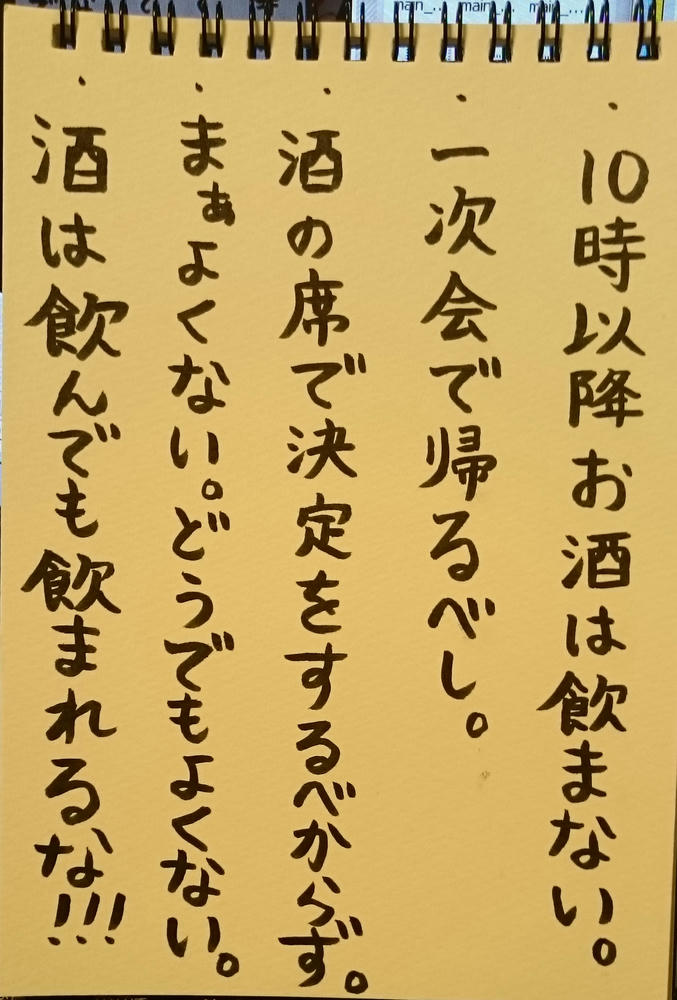 ・10時以降お酒は飲まない。
・一次会で帰るべし。
・酒の席で決定をするべからず。
・まぁよくない。どうでもよくない。
・酒は飲んでも飲まれるな!!!
main_...
main_...
main_...